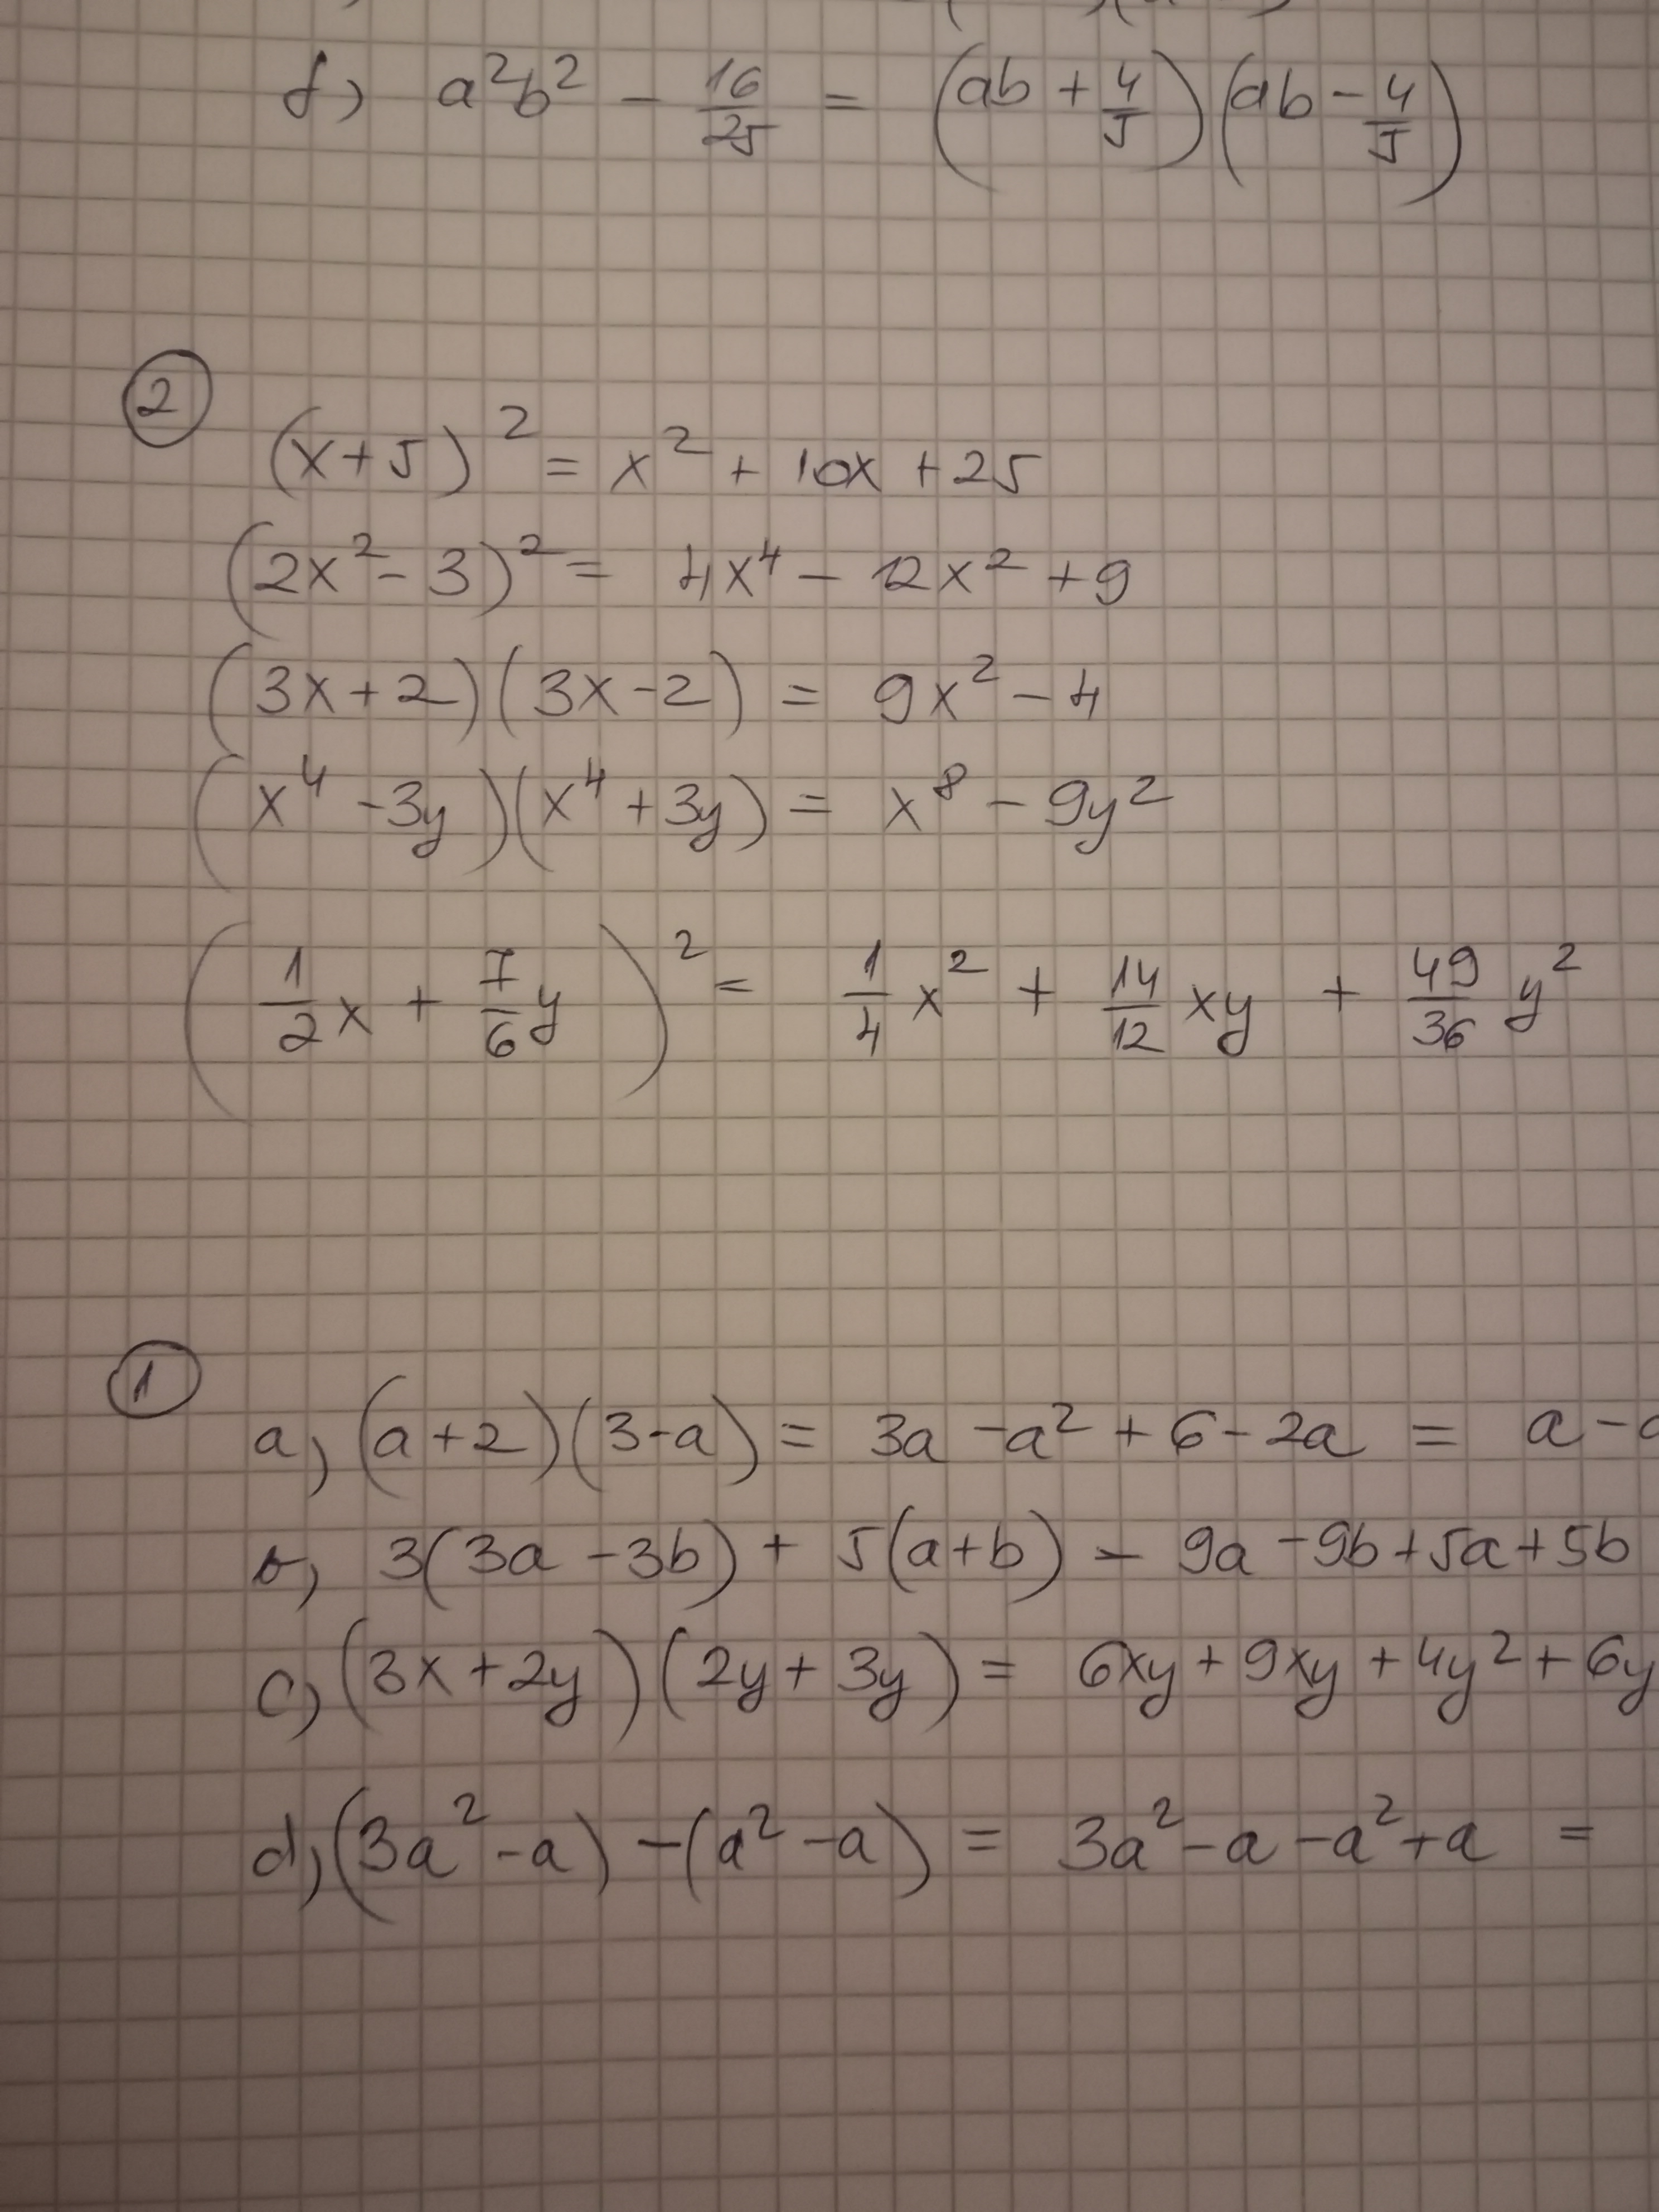 f) a²b² - 16/25 = (ab + 4/5)(ab - 4/5)
2
(x+5)² = x² + 10x + 25
(2x² - 3)² = 4x⁴ - 12x² + 9
(3x+2)(3x-2) = 9x² - 4
(x⁴ - 3y)(x⁴ + 3y) = x⁸ - 9y²
(1/2 x + 7/6 y)² = 1/4 x² + 14/12 xy + 49/36 y²
1
a) (a+2)(3-a) = 3a - a² + 6 - 2a = a -
b) 3(3a - 3b) + 5(a+b) - 9a - 9b + 5a + 5b
c) (3x + 2y)(2y + 3y) = 6xy + 9xy + 4y² + 6y
d) (3a² - a) - (a² - a) = 3a² - a - a² + a =